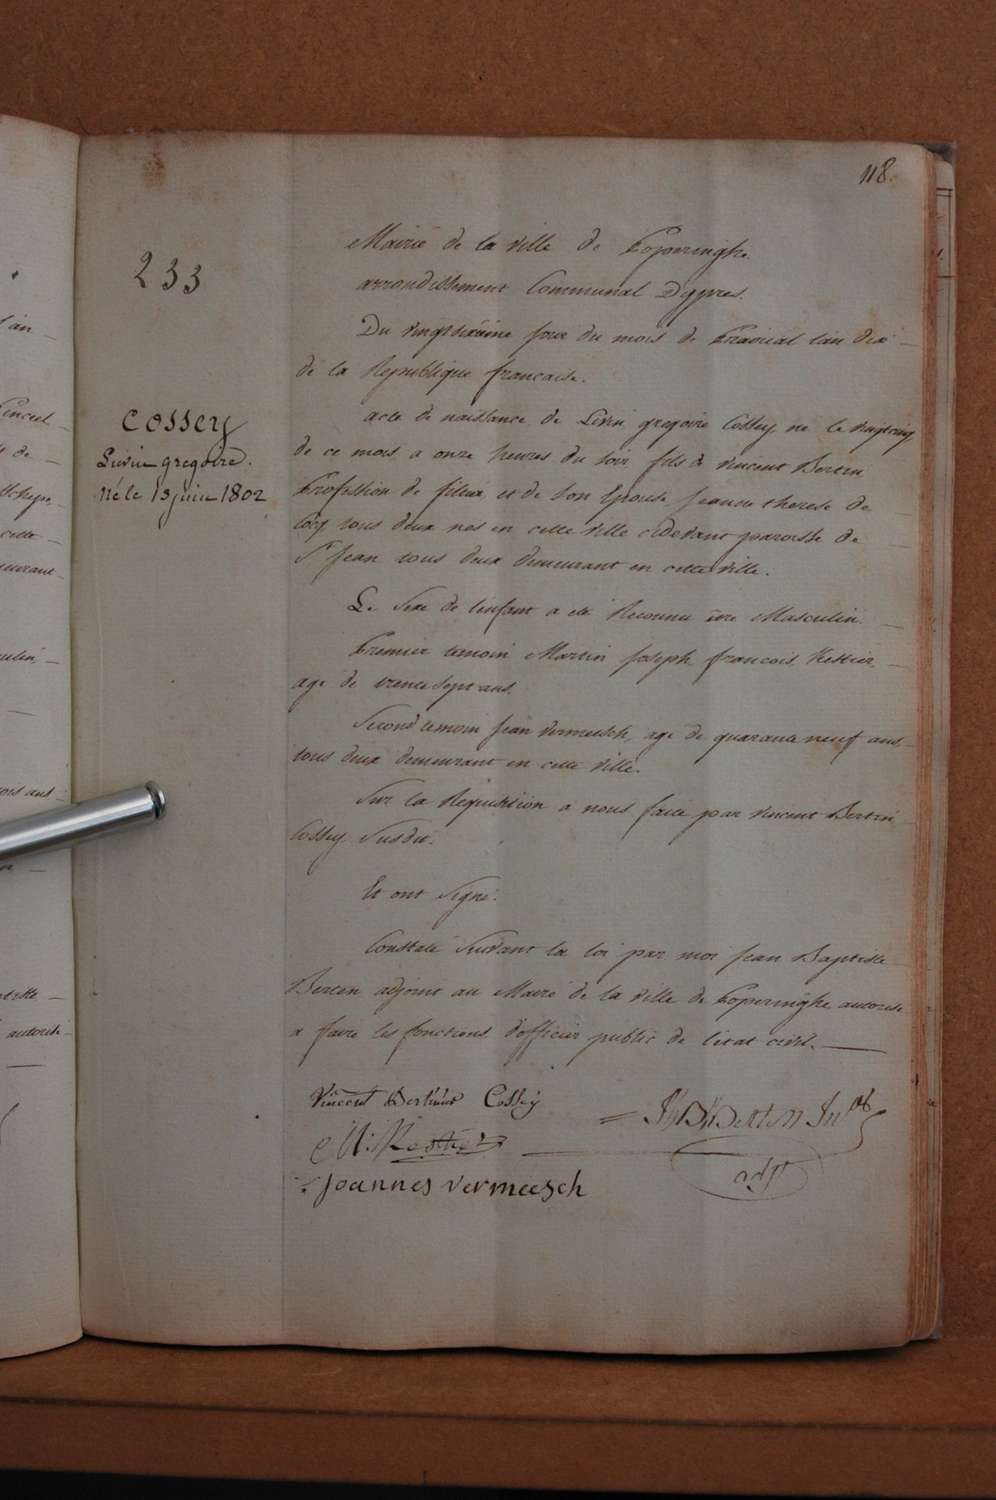 118.
233
Mairie de la ville de Poperinghe
arrondissement Communal Dypres.
Du vingt sixieme jour du mois de Prairial l'an dix
de la Republique francaise.
COSSEY
Livin gregoire.
né le 13 juin 1802
acte de naissance de Livin gregoire Cossey né le vingt cinq
de ce mois a onze heures du soir fils de vincent Bertin
Profession de fileur et de son Epouse jeanne therese de
cocq tous deux nes en cette ville cidevant paroisse de
St jean tous deux demeurant en cette ville.
Le Sexe de l'enfant a eté Reconnu être Masculin.
Premier temoin Martin joseph francois Kestier
age de trente sept ans.
Second temoin jean vermeesch, age de quarante neuf ans
tous deux demeurant en cette ville.
Sur la Requisition a nous faite par vincent Bertin
Cossey Susdit.
Et ont Signé.
Constaté Suivant la loi par moi jean Baptiste
Berten adjoint au Maire de la ville de Poperinghe autorisé
a faire les fonctions d'officier public de l'état civil.
Vincent Bertinus Cossey
Berten
adjt
joannes vermeesch